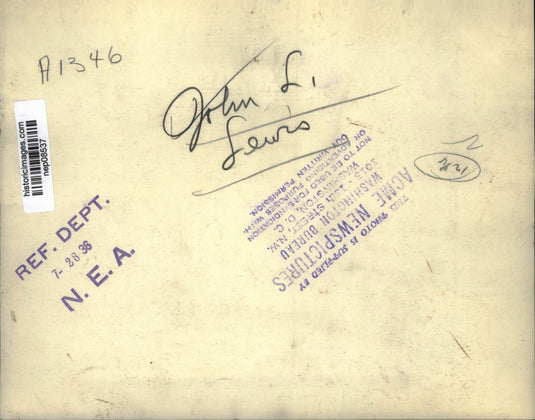 A1346
John L.
Lewis
historicimages.com
nep08537
REF. DEPT.
7-28 36
N. E. A.
THIS PHOTO IS SUPPLIED BY
ACME NEWSPICTURES
WASHINGTON BUREAU
STREET, N.W.
WASHINGTON, D. C.
NOT TO BE USED FOR SYNDICATION
OR ADVERTISING PURPOSES WITH-
OUT WRITTEN PERMISSION.